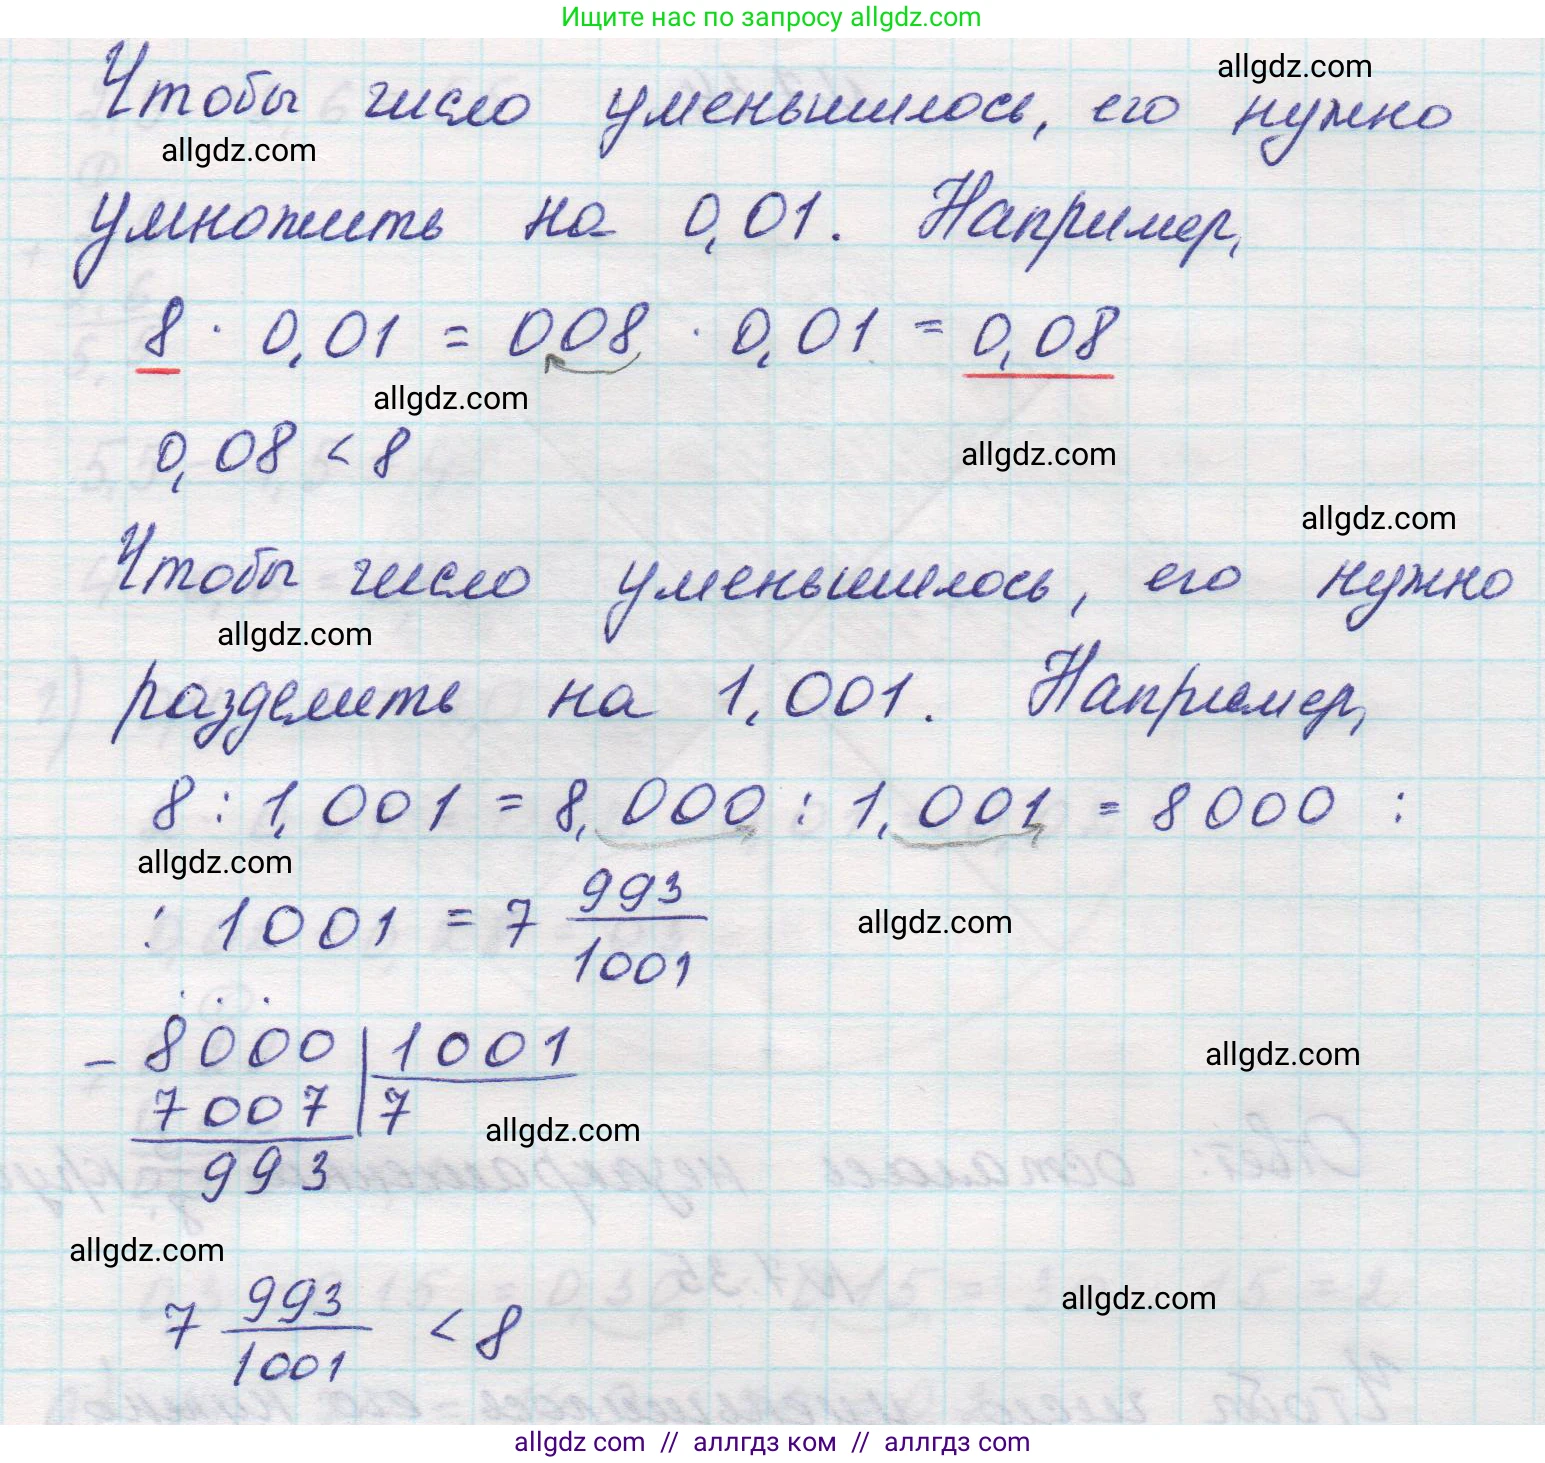 Ищите нас по запросу allgdz.com
allgdz.com
Чтобы число уменьшилось, его нужно
allgdz.com
умножить на 0,01. Например,
8 · 0,01 = 008 · 0,01 = 0,08
allgdz.com
0,08 < 8
allgdz.com
allgdz.com
Чтобы число уменьшилось, его нужно
allgdz.com
разделить на 1,001. Например,
8 : 1,001 = 8,000 : 1,001 = 8000 :
allgdz.com
: 1001 = 7 993/1001
allgdz.com
- 8000 | 1001
allgdz.com
7007 | 7
allgdz.com
993
allgdz.com
7 993/1001 < 8
allgdz.com
allgdz com // аллгдз ком // аллгдз com